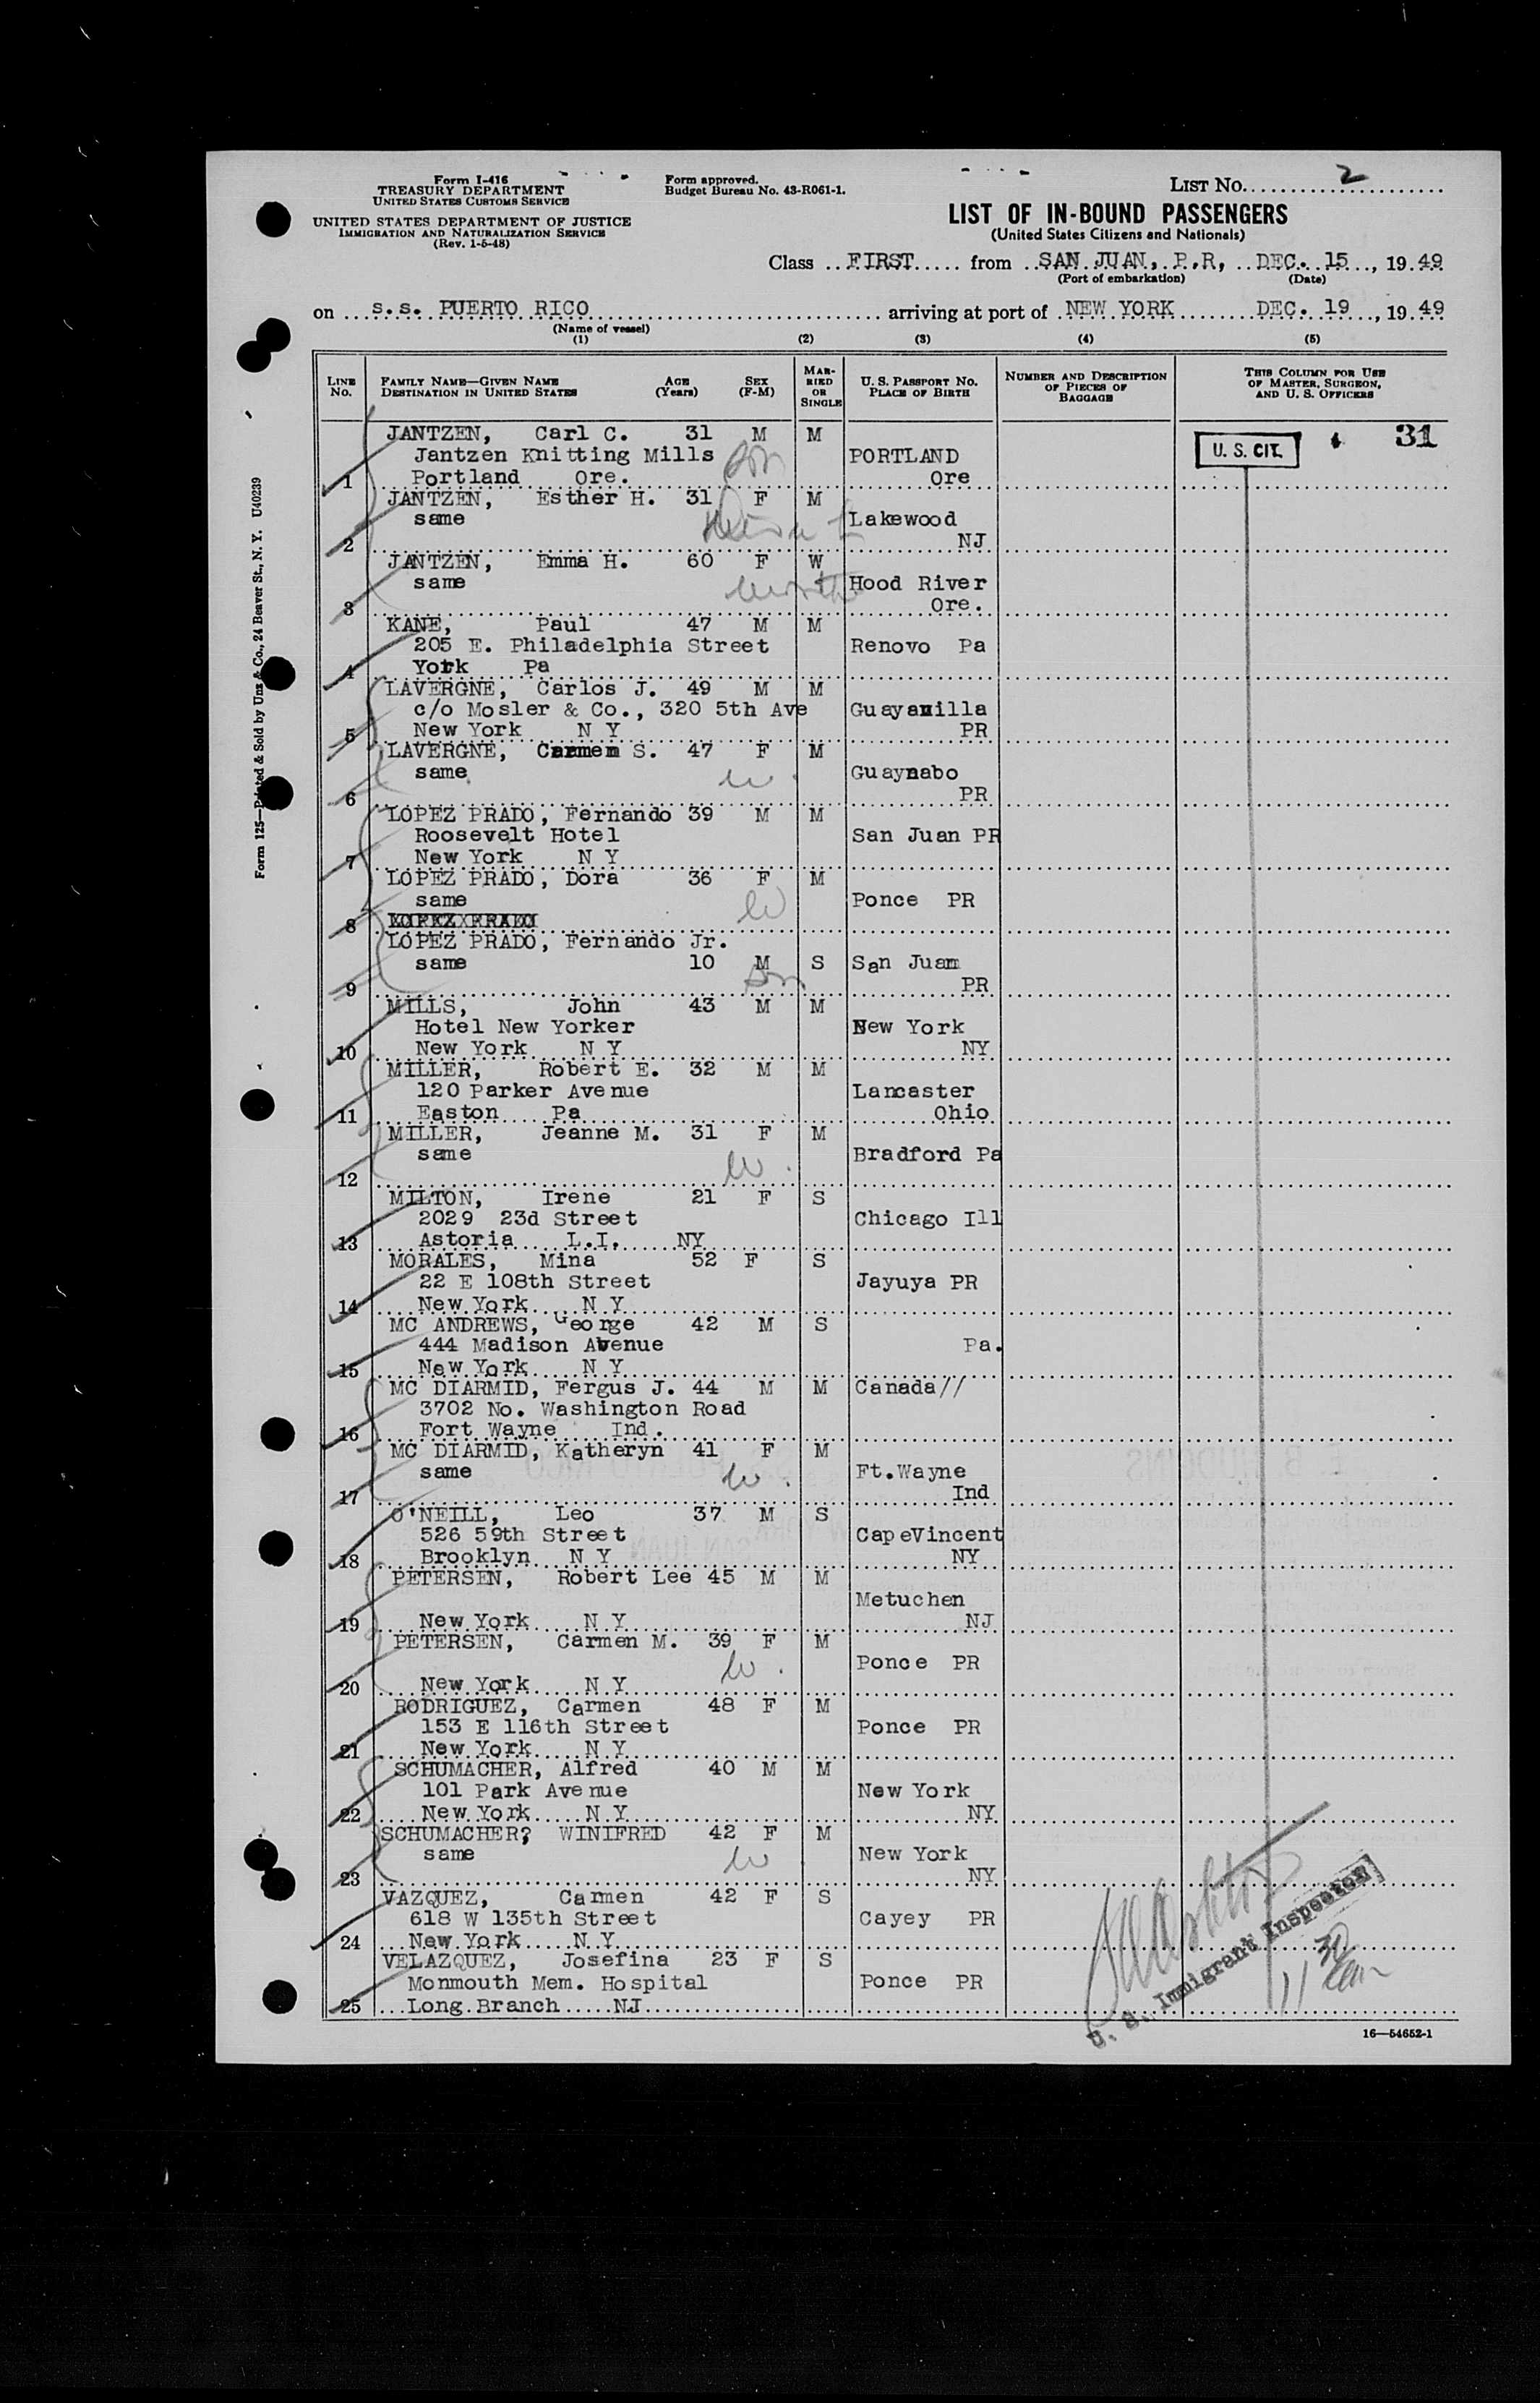 Form I-416
TREASURY DEPARTMENT
UNITED STATES CUSTOMS SERVICE
UNITED STATES DEPARTMENT OF JUSTICE
IMMIGRATION AND NATURALIZATION SERVICE
(Rev. 1-5-48)
Form approved.
Budget Bureau No. 43-R061-1.
LIST No. 2
LIST OF IN-BOUND PASSENGERS
(United States Citizens and Nationals)
Class FIRST from SAN JUAN, P.R, DEC. 15, 1949
(Port of embarkation) (Date)
on s.s. PUERTO RICO arriving at port of NEW YORK DEC. 19, 1949
(Name of vessel)
(1) (2) (3) (4) (5)
LINE No. FAMILY NAME—GIVEN NAME DESTINATION IN UNITED STATES AGE (Years) SEX (F-M) MARRIED OR SINGLE U. S. PASSPORT No. PLACE OF BIRTH NUMBER AND DESCRIPTION OF PIECES OF BAGGAGE THIS COLUMN FOR USE OF MASTER, SURGEON, AND U. S. OFFICERS
JANTZEN, Carl C. 31 M M U. S. CIT. 31
Jantzen Knitting Mills son PORTLAND
1 Portland Ore. Ore
JANTZEN, Esther H. 31 F M
same Lakewood
2 NJ
JANTZEN, Emma H. 60 F W
same Hood River
3 Ore.
KANE, Paul 47 M M
205 E. Philadelphia Street Renovo Pa
4 York Pa
LAVERGNE, Carlos J. 49 M M
c/o Mosler & Co., 320 5th Ave Guayanilla
5 New York N Y PR
LAVERGNE, Carmen S. 47 F M
same w. Guaynabo
6 PR
LOPEZ PRADO, Fernando 39 M M
Roosevelt Hotel San Juan PR
7 New York N Y
LOPEZ PRADO, Dora 36 F M
same w Ponce PR
8
LOPEZ PRADO, Fernando Jr.
same 10 M S San Juan
9 son PR
MILLS, John 43 M M
Hotel New Yorker New York
10 New York N Y NY
MILLER, Robert E. 32 M M
120 Parker Avenue Lancaster
11 Easton Pa Ohio
MILLER, Jeanne M. 31 F M
same w. Bradford Pa
12
MILTON, Irene 21 F S
2029 23d Street Chicago Ill
13 Astoria L.I. NY
MORALES, Mina 52 F S
22 E 108th Street Jayuya PR
14 New York N Y
MC ANDREWS, George 42 M S
444 Madison Avenue Pa.
15 New York N Y
MC DIARMID, Fergus J. 44 M M Canada//
3702 No. Washington Road
16 Fort Wayne Ind.
MC DIARMID, Katheryn 41 F M
same w. Ft.Wayne
17 Ind
O'NEILL, Leo 37 M S
526 59th Street CapeVincent
18 Brooklyn N Y NY
PETERSEN, Robert Lee 45 M M
Metuchen
19 New York N Y NJ
PETERSEN, Carmen M. 39 F M
w. Ponce PR
20 New York N Y
RODRIGUEZ, Carmen 48 F M
153 E 116th Street Ponce PR
21 New York N Y
SCHUMACHER, Alfred 40 M M
101 Park Avenue New York
22 New York N Y NY
SCHUMACHER? WINIFRED 42 F M
same w New York
23 NY
VAZQUEZ, Carmen 42 F S
618 W 135th Street Cayey PR
24 New York N Y
VELAZQUEZ, Josefina 23 F S
Monmouth Mem. Hospital Ponce PR
25 Long Branch NJ
U. S. Immigrant Inspector
16—54652-1
Form 125—Printed & Sold by Unz & Co., 24 Beaver St., N. Y. U40239